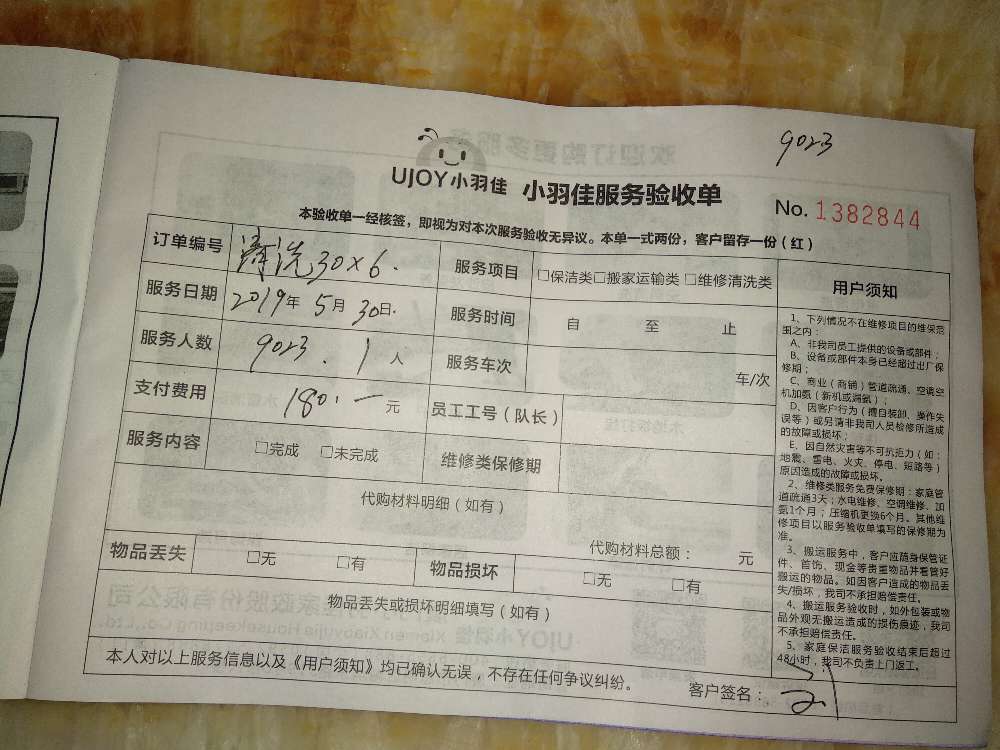 9023
UJOY小羽佳 小羽佳服务验收单
No. 1382844
本验收单一经核签，即视为对本次服务验收无异议。本单一式两份，客户留存一份（红）
订单编号 清洗30×6.
服务项目 □保洁类□搬家运输类 □维修清洗类
服务日期 2019年 5月 30日.
服务时间 自 至 止
服务人数 9023. 1人
服务车次 车/次
支付费用 180.一元
员工工号（队长）
服务内容 □完成 □未完成
维修类保修期
代购材料明细（如有）
代购材料总额： 元
物品丢失 □无 □有
物品损坏 □无 □有
物品丢失或损坏明细填写（如有）
本人对以上服务信息以及《用户须知》均已确认无误，不存在任何争议纠纷。
客户签名：
用户须知
1、下列情况不在维修项目的维保范
围之内：
A、非我司员工提供的设备或部件；
B、设备或部件本身已经超过出厂保
修期；
C、商业（商铺）管道疏通、空调空
机加氨（新机或漏氨）；
D、因客户行为（擅自装卸、操作失
误等）或另请非我司人员检修所造成
的故障或损坏；
E、因自然灾害等不可抗拒力（如：
地震、雷电、火灾、停电、短路等）
原因造成的故障或损坏。
2、维修类服务免费保修期：家庭管
道疏通3天；水电维修、空调维修、加
氨1个月；压缩机更换6个月。其他维
修项目以服务验收单填写的保修期为
准。
3、搬运服务中，客户应随身保管证
件、首饰、现金等贵重物品并看管好
搬运的物品。如因客户造成的物品丢
失/损坏，我司不承担赔偿责任。
4、搬运服务验收时，如外包装或物
品外观无搬运造成的损伤痕迹，我司
不承担赔偿责任。
5、家庭保洁服务验收结束后超过
48小时，我司不负责上门返工。